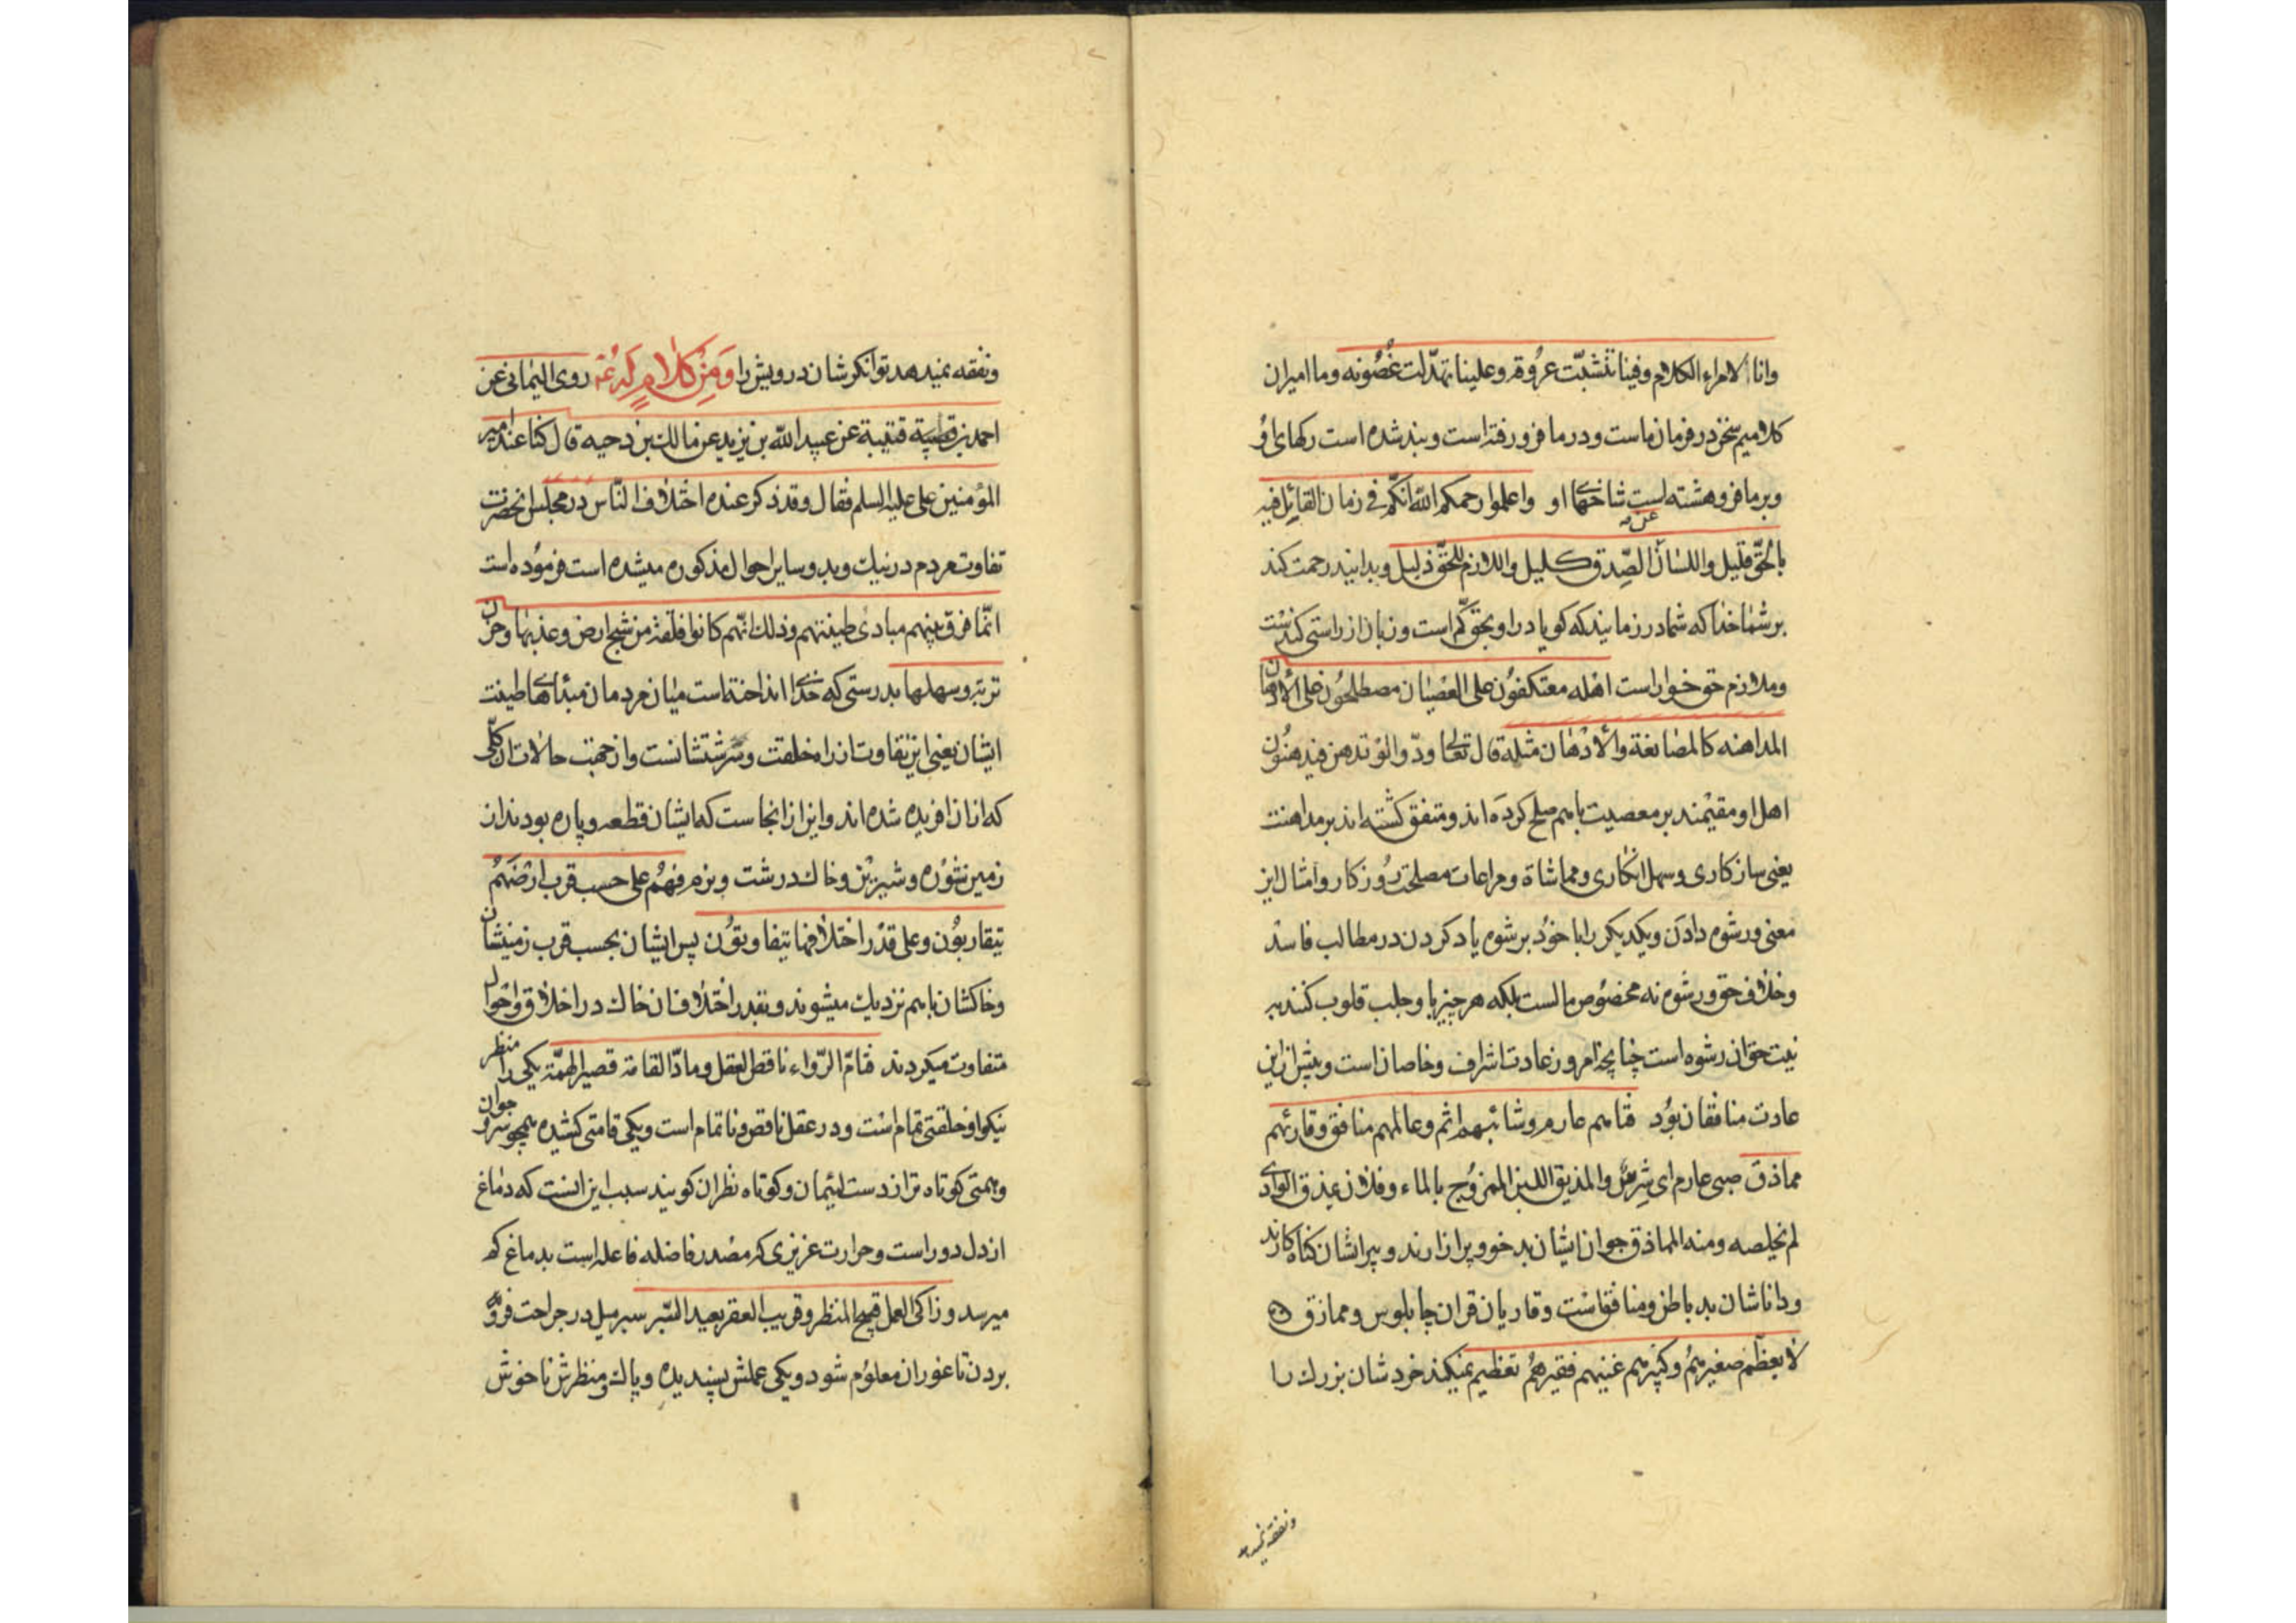 وانا لامراء الکلام وفینا تنشبّت عرُوقه وعلینا تهدّلت غُصُونه وما امیران
کلامیم سخن در فرمان ماست و در ما فرو رفته است و بند شده است رکهای اوُ
وبر ما فرو هشته است شاخهای او واعلموا رحمکم الله انکّم فی زمان القائِل فیه
بالحَقّ قلیل واللسَان عن الصِّدق کلیل واللازم للحَقّ ذلیل و بدانید رحمت کند
بر شمٰا خدٰا که شما در زمانیدکه کویا در او بحق کم است و زبان از راستی کند ست
وملازم حق خوار است اهله معتکفوُن علی العصْیٰان مصطلحوُن علی الادهٰان
المداهنه کالمصٰانعة والاْدْهٰان مثله قال تعالی ودّوا لو تدهن فیدهنُون
اهل او مقیْمند بر معصیت باهم صلح کردَه اند و متفق کشته اند بر مداهنت
یعنی سازکاری وسهل انکاری ومماشاة ومراعات مصلحت رُوزکار و امثال این
معنی ورشوه دادَن ویکدیکر را با خوُد بر شوم یاد کردن در مطالب فاسد
وخلاف حق ورشوه نه مخصُوص مالست بلکه هر چیز با و جلب قلوب کنند بر
نیت حق ان رشوه است چنانچه امروز عادت اشراف وخاصان است وپیش از این
عادت منافقان بوُد فتاهم عارم وشائبهم اثم وعالمهم منافق وقارئهم
مماذق صبی عارم ای شرس والمذیق اللبن الممزوُج بالماء وفلان یمذق الوادی
لم یخلصه ومنه المماذق جوان ایشان بد خو و پر ازارند و پیر ایشان کناه کارند
و داناشان بد باطن ومنافقانست وقاریان قران چابلوس ومماذق
لا یعظّم صغیرهمُ وکبیرهم غنیهم فقیرهمُ تعظیم نمیکند خردشان بزرك را
و نفقه نمیدهد
ونفقه نمیدهد توانکرشان درویش را وَمِنْ کَلٰامٍ لَه عٓ روی الیمٰانی عن
احمد بن قتیبة عن عبید الله بن یزید عن مالك بن دحیه قال کنا عند امیر
المؤمنین علی علیه السلم فقال وقد ذکر عنده اختلاف النّاس در مجلس انحضرت
تفاوت مردم در نیك وبد و سایر احوال مذکوره میشده است فرموُده است
انّما فرق بینهم مبادئ طینتهم وذلك انّهم کانوا فلقة من سبخ ارض وعذبهٰا وحزن
تربة وسهلها بدرستی که خدای انداخته است میٰان مردمان مبداٴهای طینت
ایشان یعنی این تفاوت از راه خلقت وسرشتشانست و از جهت حالات ان کلّی
که از ان افریده شده اند و این از انجاست که ایشان قطعه و پاره بودند از
زمین شوُره وشیرین وخاك درشت ونرم فهمُ علی حسب قرب ارضهَمُ
یتقاربوُن وعلی قدْر اختلافها یتفاوتوُن پس ایشان بحسب قرب زمینشان
وخاکشان باهم نزدیك میشوند و بقدر اختلاف ان خاك در اخلاق واحوال
متفاوت میکردند فتامّ الرّواء ناقص العقل ومادّ القامة قصیر الهمّة یکی را منظر
نیکو او خلقتی تمام است و در عقل ناقص و ناتمام است ویکی قامتی کشیده همچو سرو جوان
وهمتی کوتاه تر از دست لئیمان و کوتاه نظران کویند سبب این انست که دمٰاغ
از دل دور است وحرارت عزیزی که مصْدر فاضله فاعله است بدماغ که
میرسد وزاکی العمل قبیح المنظر وقریب القعر بعید السّبر سبر میل در جراحت فرو
بردن تا غور ان معلوُم شود و یکی عملش پسندیده وپاك و منظرش ناخوش